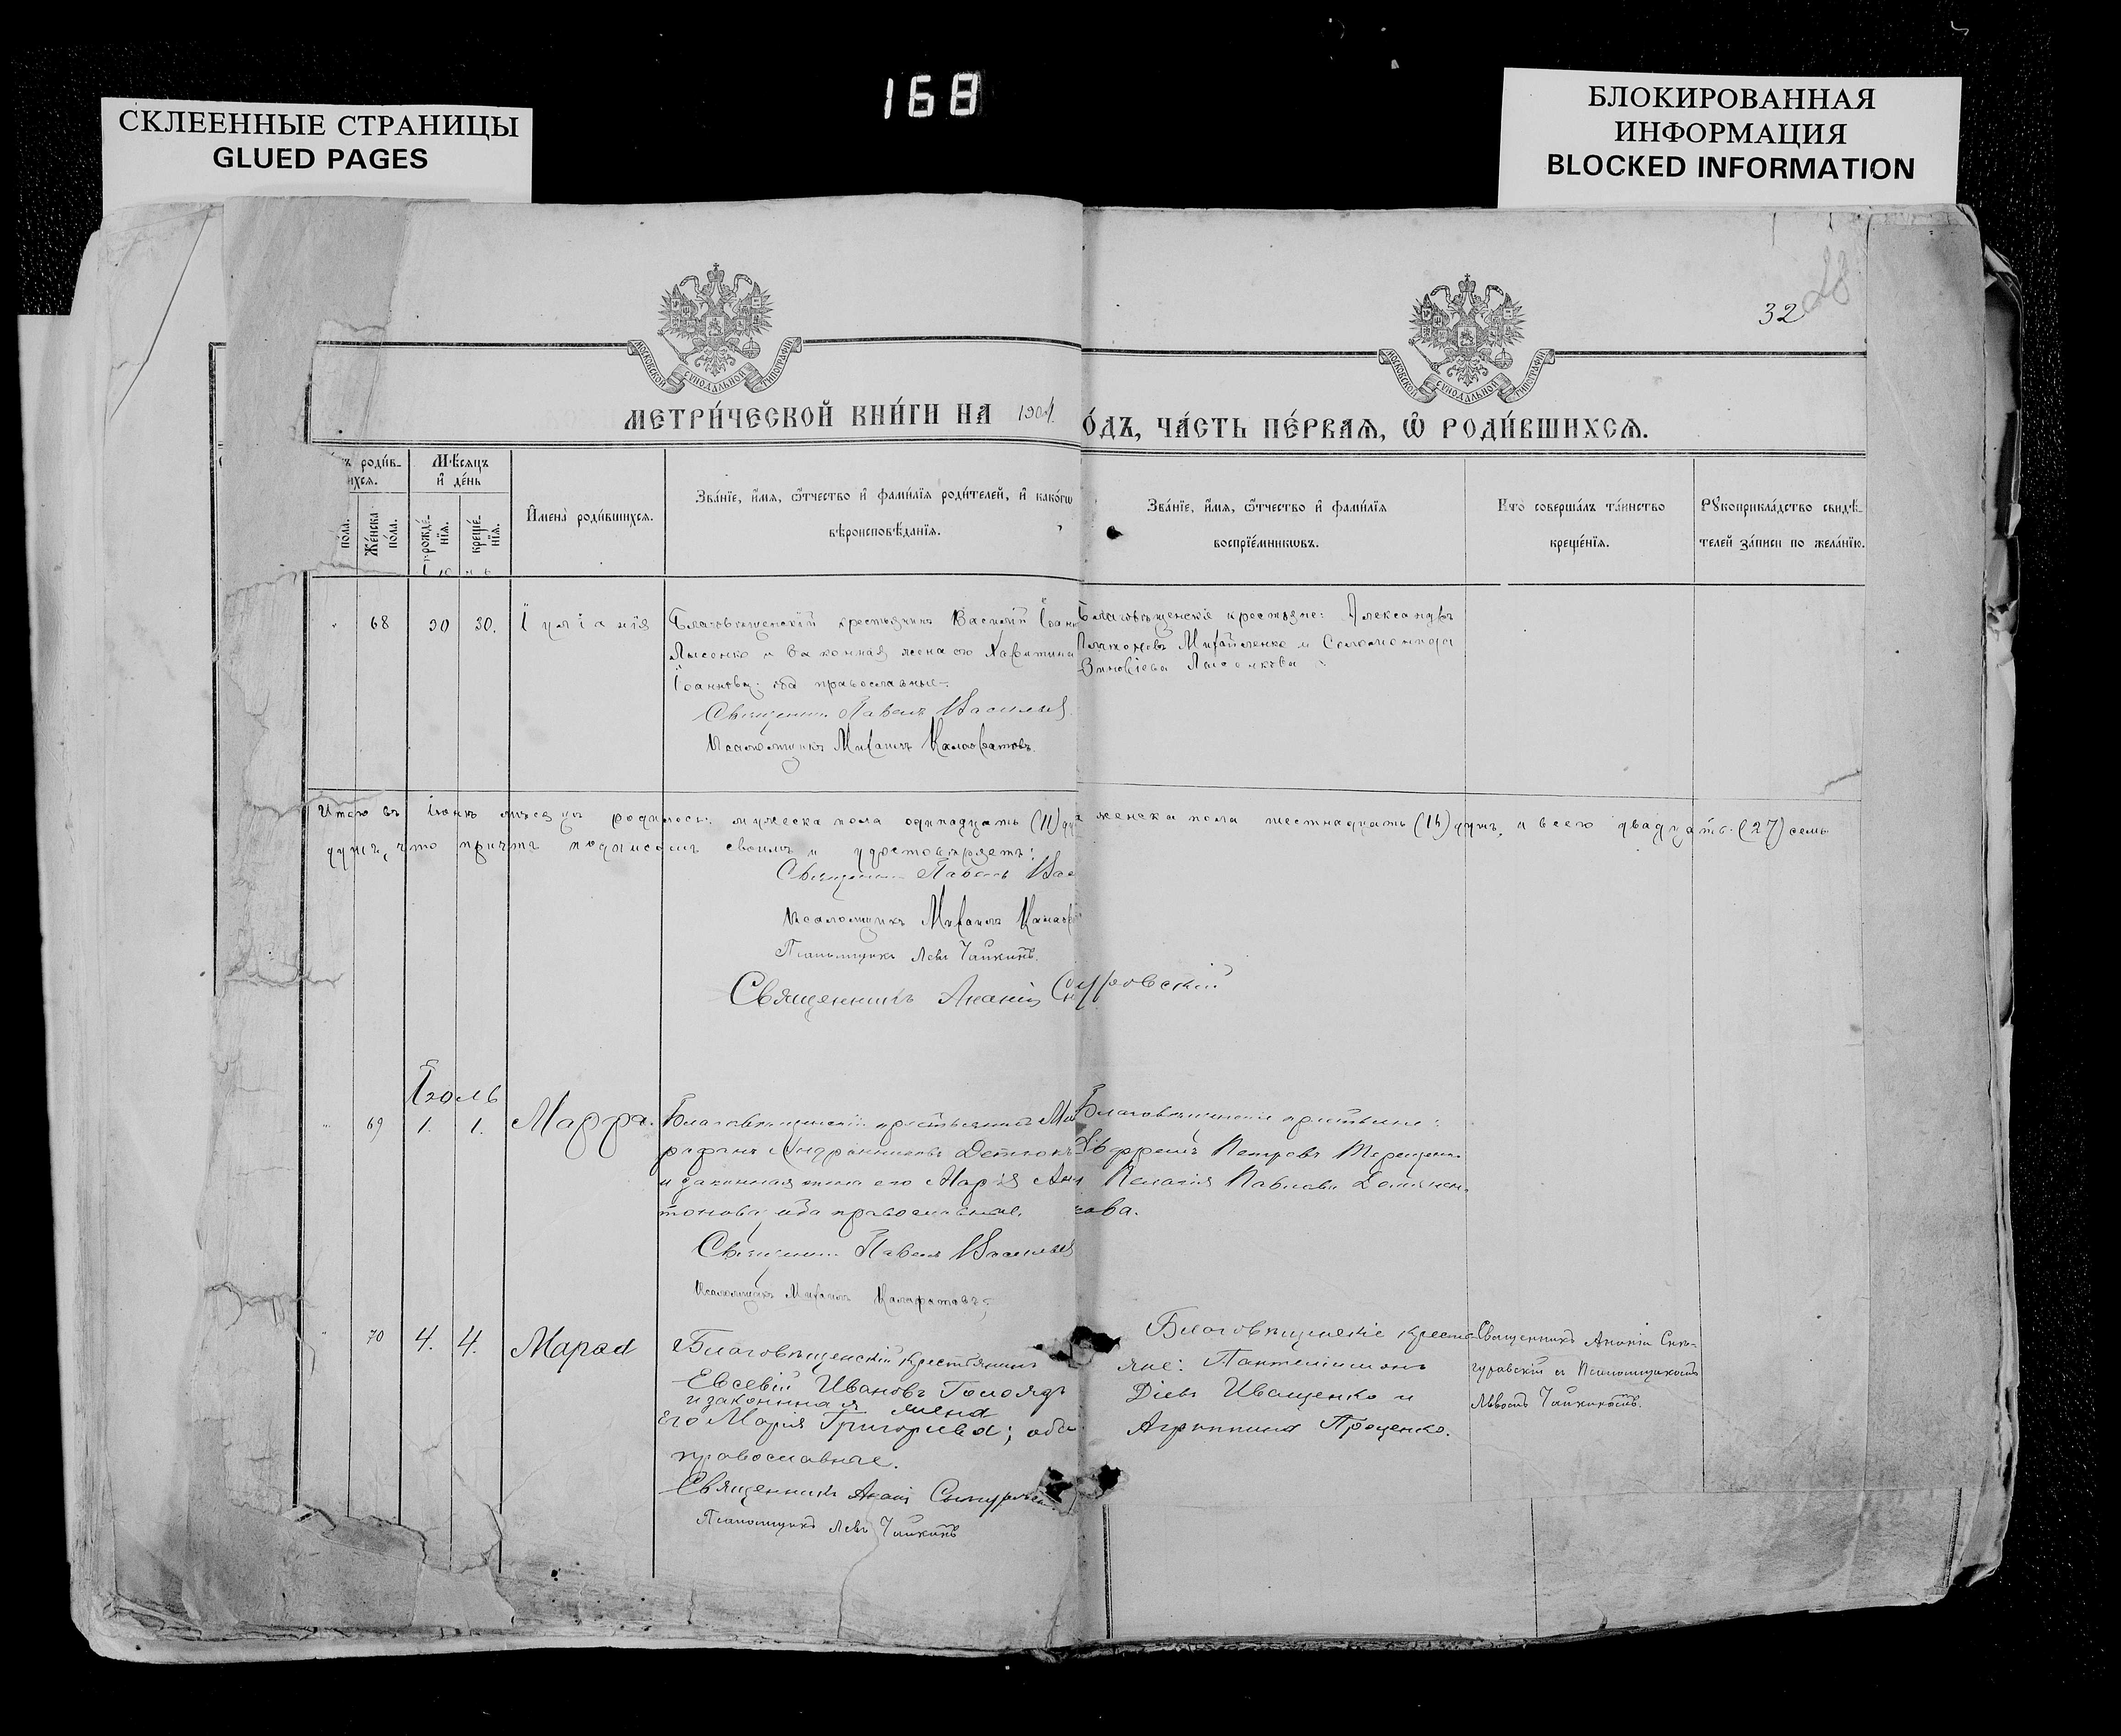 168
СКЛЕЕННЫЕ СТРАНИЦЫ
GLUED PAGES
БЛОКИРОВАННАЯ
ИНФОРМАЦИЯ
BLOCKED INFORMATION
32
28
МОСКОВСКОЙ СѴНОДАЛЬНОЙ ТИПОГРАФІИ
МОСКОВСКОЙ СѴНОДАЛЬНОЙ ТИПОГРАФІИ
МЕТРИ́ЧЕСКОЙ КНИ́ГИ НА 1904
О́ДЪ, ЧА́СТЬ ПЕ́РВАѦ, Ѡ҆ РОДИ́ВШИХСѦ.
ъ роди́в-
ихсѧ.
Мѣ́сѧцъ
и҆ де́нь
по́ла.
Же́нска
по́ла.
рожде́-
нїѧ.
креще́-
нїѧ.
И҆мена̀ роди́вшихсѧ.
Зва́нїе, и҆́мѧ, ѻ҆́тчество и҆ фами́лїѧ роди́телей, и҆ како́гѡ
вѣроисповѣ́данїѧ.
Зва́нїе, и҆́мѧ, ѻ҆́тчество и҆ фами́лїѧ
воспрїе́мникѡвъ.
Кто̀ соверша́лъ та́инство
креще́нїѧ.
Рꙋкоприкла́дство свидѣ́-
телей за́писи по жела́нїю.
Іюнь
68 30 30. Іуліанія
Благовѣщенскій крестьянинъ Василій Іоанн
Лысенко и законная жена его Харитина
Іоаннова; оба православные.
Священникъ Павелъ Васильев
Псаломщикъ Михаилъ Калафатовъ.
Благовѣщенскіе крестьяне: Александръ
Платоновъ Михайленко и Соломонида
Зиновіева Лысенкова
Итого въ Іюнѣ мѣсяцѣ родилось: мужеска пола одинадцать (11) ду а женска пола шестнадцать (16) душъ, и всего двадцать (27) семь
душъ, что причтъ подписомъ своимъ и удостовѣряетъ:
Священникъ Павелъ Вас
Псаломщикъ Михаилъ Калаф
Псаломщикъ Левъ Чайкинъ.
Священникъ Ананій Снѣгуровскій
Іюль
69 1. 1. Марѳа.
Благовѣщенскій крестьянинъ Ми
рофанъ Андрониковъ
и законная жена его Марія Ан
тонова; оба православные.
Священникъ Павелъ Васильев
Псаломщикъ Михаилъ Калафатовъ.
Благовѣщенскіе крестьяне:
Ефремъ Петровъ Терещенко
Пелагія Павлова
кова.
70 4. 4. Марѳа
Благовѣщенскій крестьянинъ
Евсевій Ивановъ Голоядъ
и законная жена
его Марія Григорьева; оба
православные.
Священникъ Ананій
Псаломщикъ Левъ Чайкинъ
Благовѣщенскіе кресть
яне: Пантелеимонъ
Діевъ Иващенко и
Агриппина Проценко.
Священникъ Ананій Снѣ-
гуровскій съ Псаломщикомъ
Львомъ Чайкинымъ.